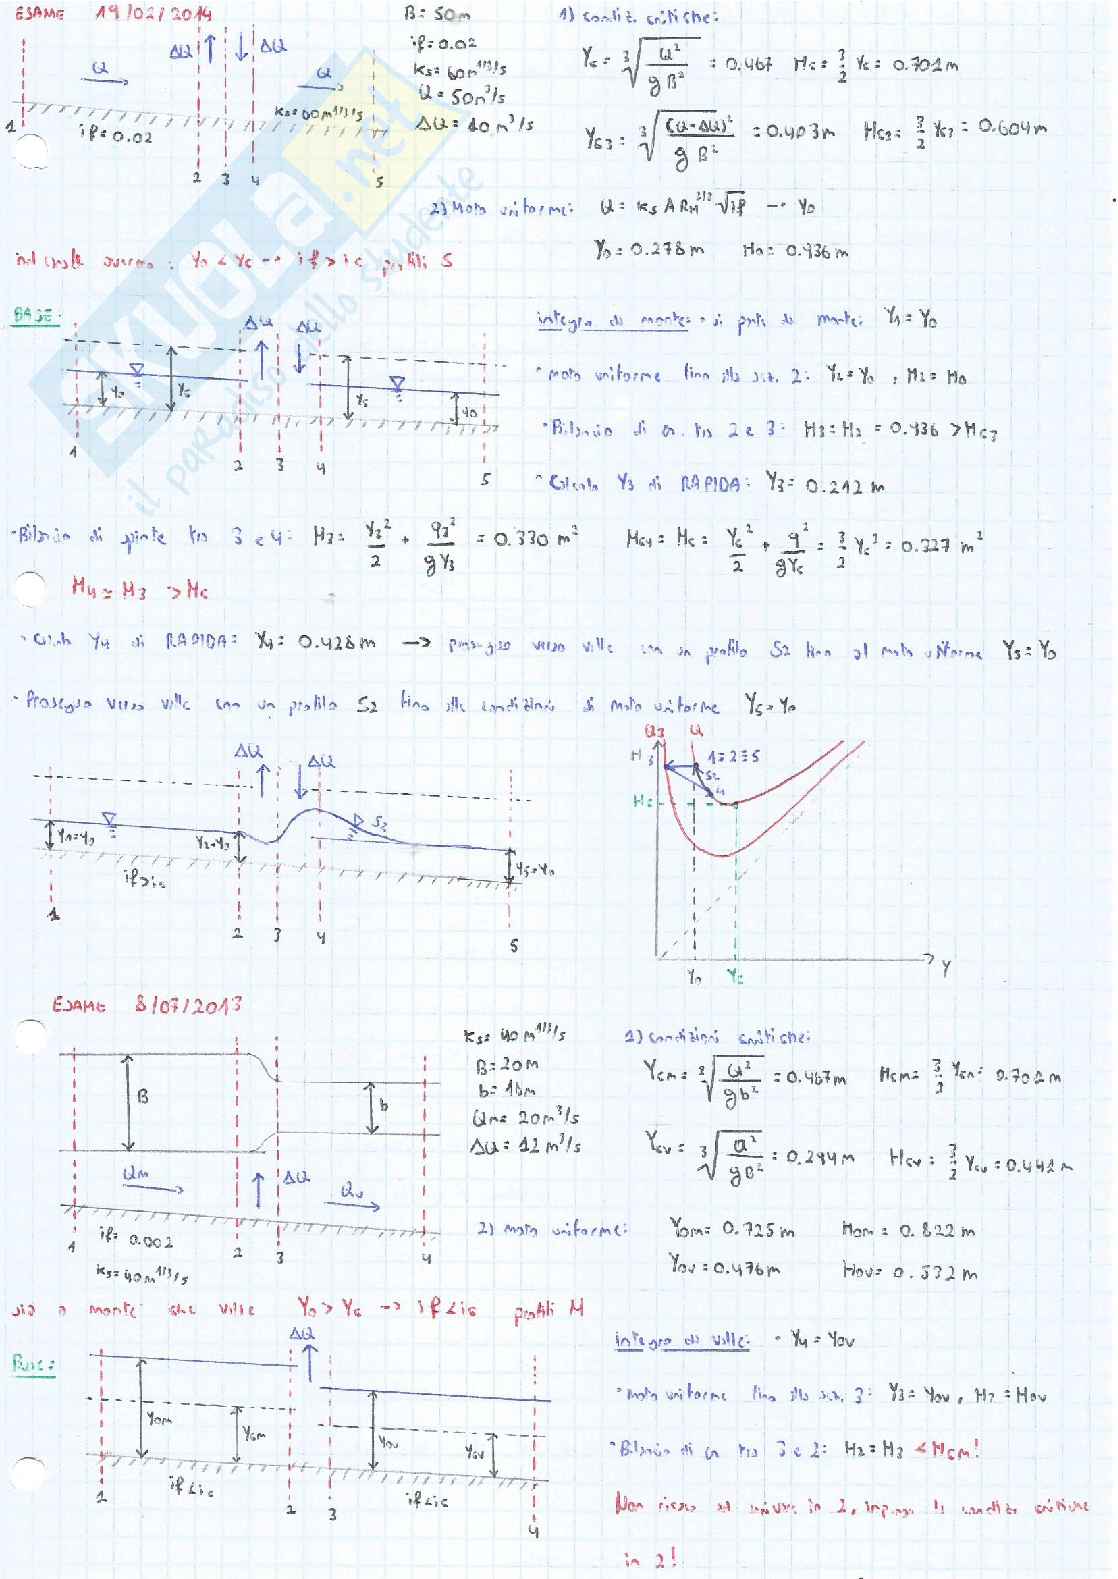 ESAME 19/02/2014
ΔQ ΔQ
Q Q
if=0.02
1 2 3 4 5
B= 50m
if=0.02
Ks= 60m^1/3/s
Q= 50m³/s
ΔQ= 10m³/s
1) condiz. critiche:
Yc= ∛(Q²/gB²) = 0.467 Hc= 3/2 Yc= 0.701m
Yc3= ∛((Q-ΔQ)²/gB²) = 0.403m Hc3= 3/2 Yc3= 0.604m
2) Moto uniforme: Q= Ks A RH^2/3 √if → Y0
Y0= 0.278m H0= 0.936m
Y0 < Yc → if>ic profili S
BASE:
ΔQ ΔQ
Y0 Yc Yc Y0
1 2 3 4 5
integro da monte: Y1=Y0
·moto uniforme fino alla sez. 2: Y2=Y0, H2=H0
·Bilancio di en. tra 2 e 3: H3=H2 = 0.936 >Hc3
·Calcolo Y3 di RAPIDA: Y3= 0.212m
·Bilancio di spinte tra 3 e 4: M3= Y3²/2 + q3²/gY3 = 0.330m² Mc4= Mc= Yc²/2 + q²/gYc = 3/2 Yc²= 0.327m²
M4=M3 >Mc
·Calcolo Y4 di RAPIDA: Y4= 0.428m → proseguo verso valle con un profilo S2 fino al moto uniforme Y5=Y0
·Proseguo verso valle con un profilo S2 fino alle condizioni di moto uniforme Y5=Y0
ΔQ ΔQ
Y1=Y0 Y2=Y0 S2 Y5=Y0
if>ic
1 2 3 4 5
Q3 Q
H 3 1=2=5
S2
4
Hc
Y0 Yc Y
ESAME 8/07/2013
B b
Qm ΔQ Qv
if= 0.002
Ks=40m^1/3/s
1 2 3 4
Ks= 40m^1/3/s
B=20m
b=10m
Qm= 20m³/s
ΔQ= 12m³/s
1) condizioni critiche:
Ycm= ∛(Q²/gb²) = 0.467m Hcm= 3/2 Ycm= 0.701m
Ycv= ∛(Q²/gB²) = 0.294m Hcv= 3/2 Ycv= 0.441m
2) moto uniforme: Y0m= 0.725m H0m= 0.822m
Y0v=0.476m H0v= 0.532m
sia a monte che valle Y0>Yc → if<ic profili M
BASE:
ΔQ
Y0m Ycm Y0v Ycv
if<ic if<ic
1 2 3 4
integro da valle: · Y4=Y0v
·moto uniforme fino alla sez. 3: Y3=Y0v, H3=H0v
·Bilancio di en tra 3 e 2: H2=H3 <Hcm!
Non riesco ad arrivare in 2, impongo la condiz. critiche
in 2!